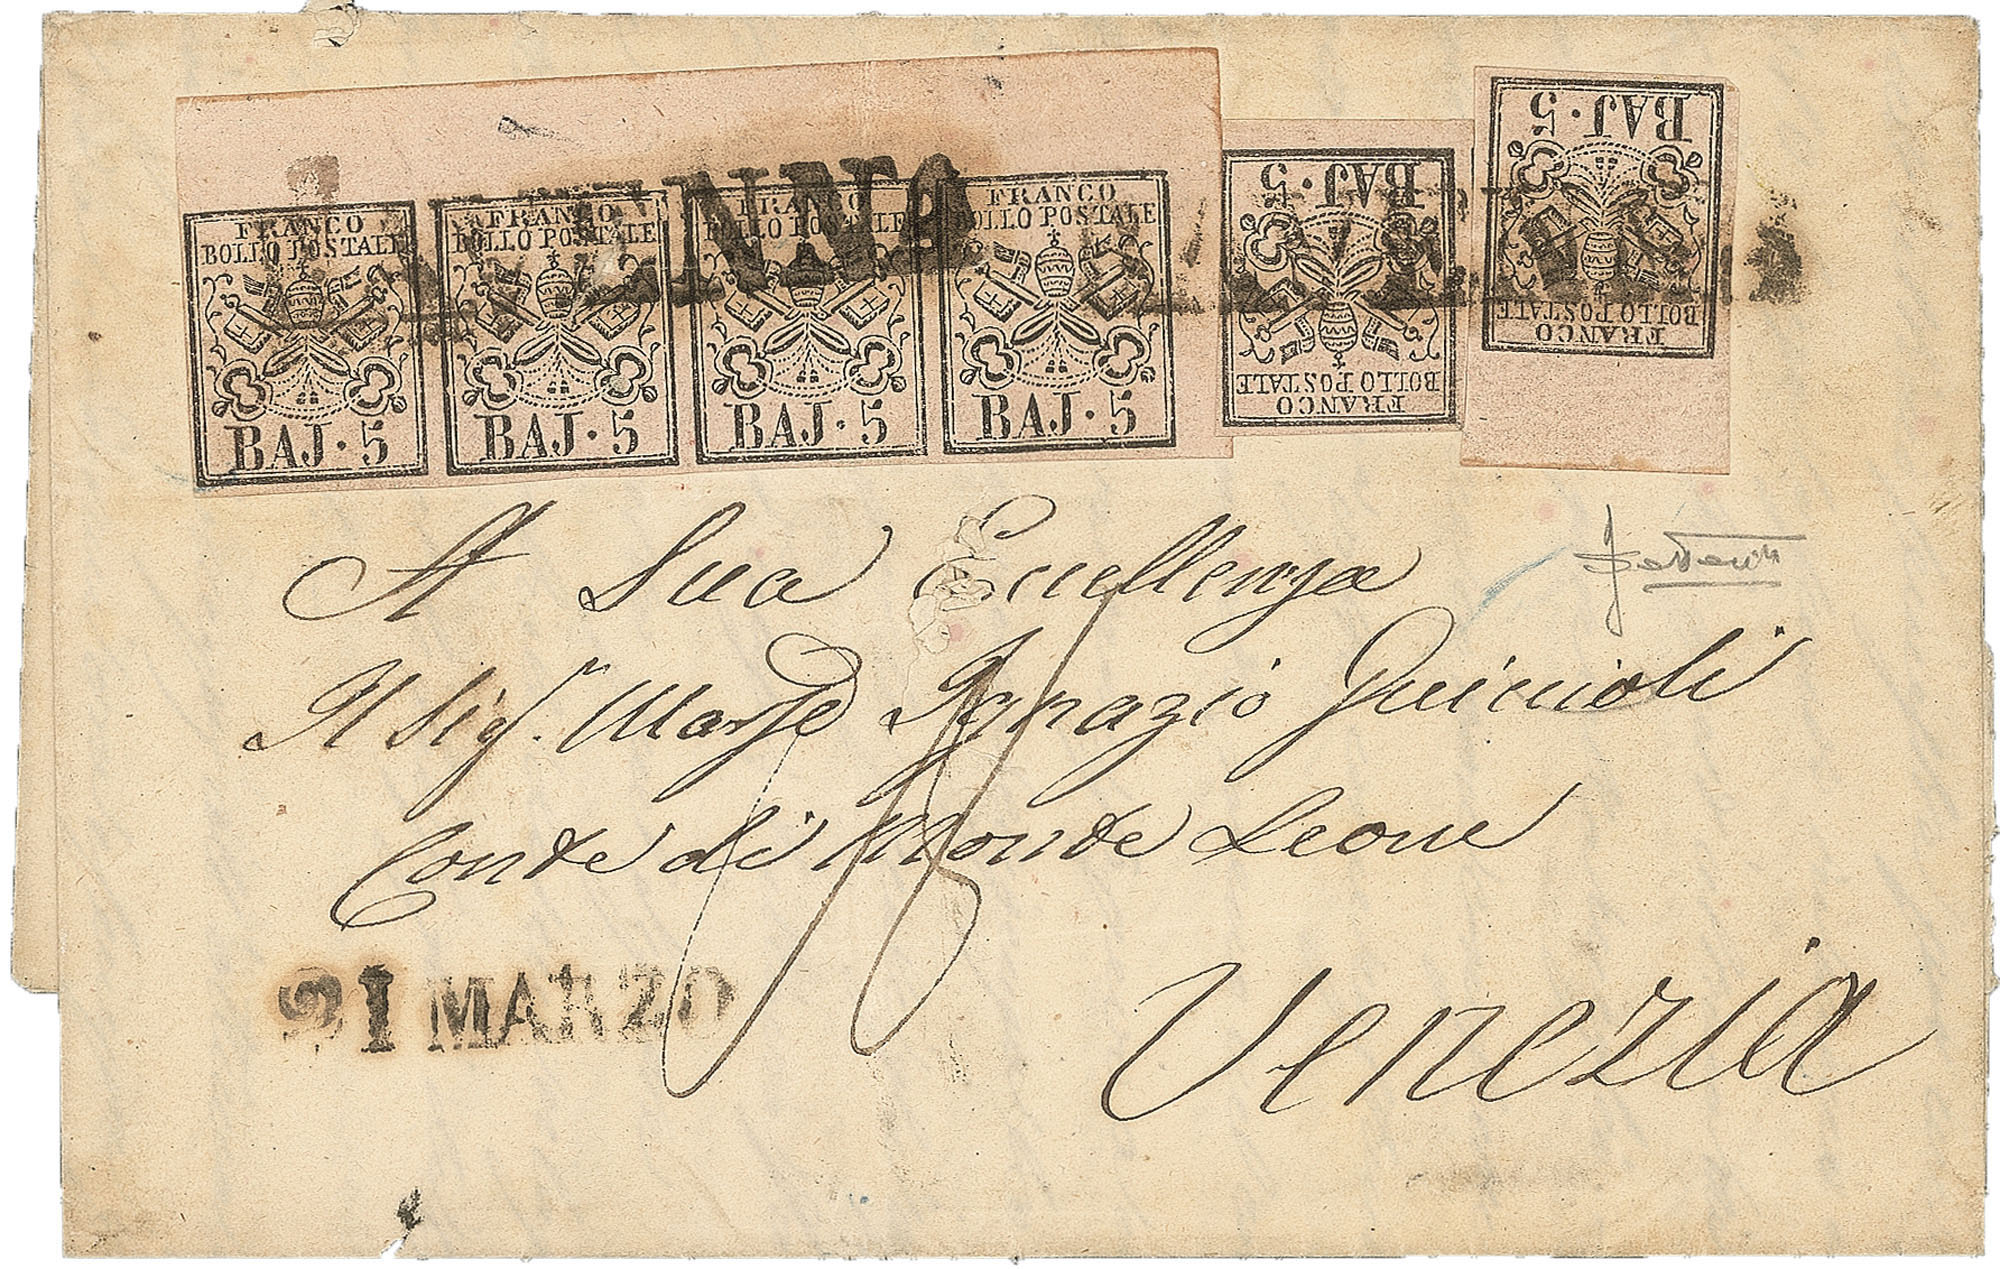 FRANCO BOLLO POSTALE BAJ · 5
FRANCO BOLLO POSTALE BAJ · 5
FRANCO BOLLO POSTALE BAJ · 5
FRANCO BOLLO POSTALE BAJ · 5
FRANCO BOLLO POSTALE BAJ · 5
FRANCO BOLLO POSTALE BAJ · 5
A Sua Eccellenza
Il Sig.r March.e Ignazio Guiccioli
Conte di Monte Leone
21 MARZO
Venezia